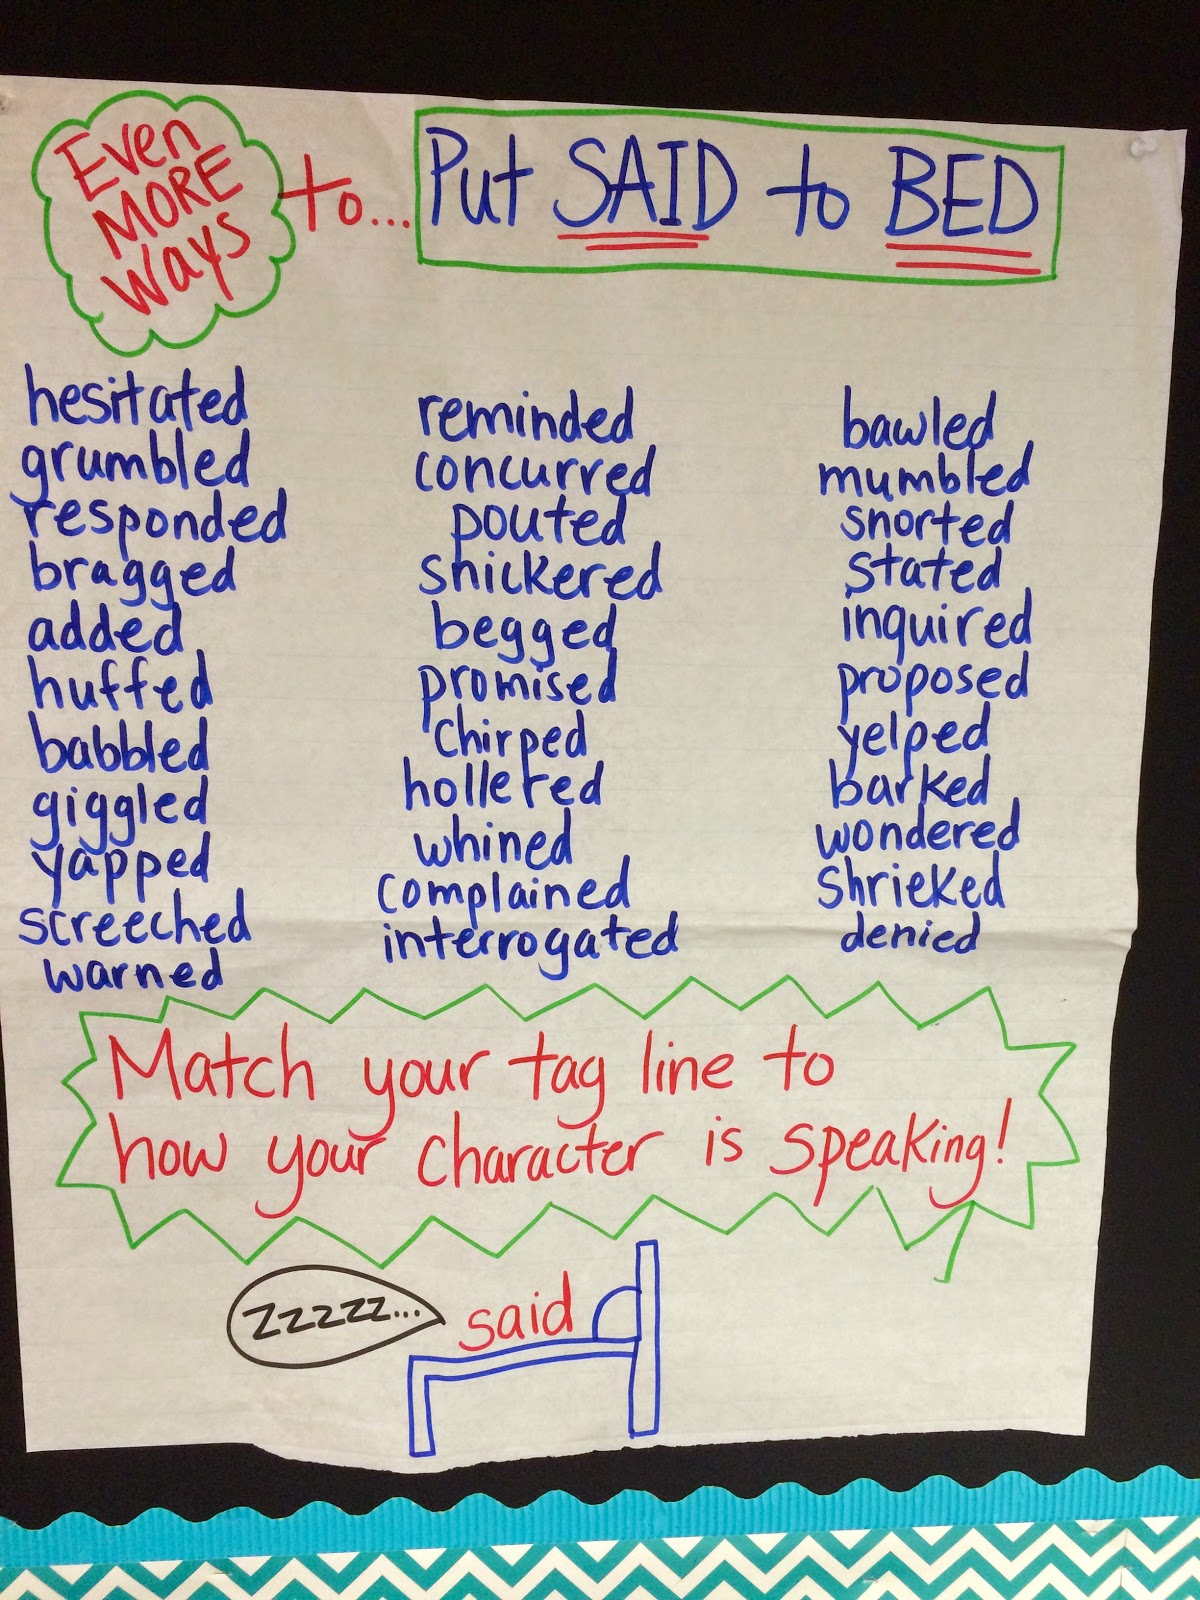 Even
MORE
ways
to...
Put SAID to BED
hesitated
grumbled
responded
bragged
added
huffed
babbled
giggled
yapped
screeched
warned
reminded
concurred
pouted
snickered
begged
promised
chirped
hollered
whined
complained
interrogated
bawled
mumbled
snorted
stated
inquired
proposed
yelped
barked
wondered
shrieked
denied
Match your tag line to
how your character is speaking!
zzzzz...
said